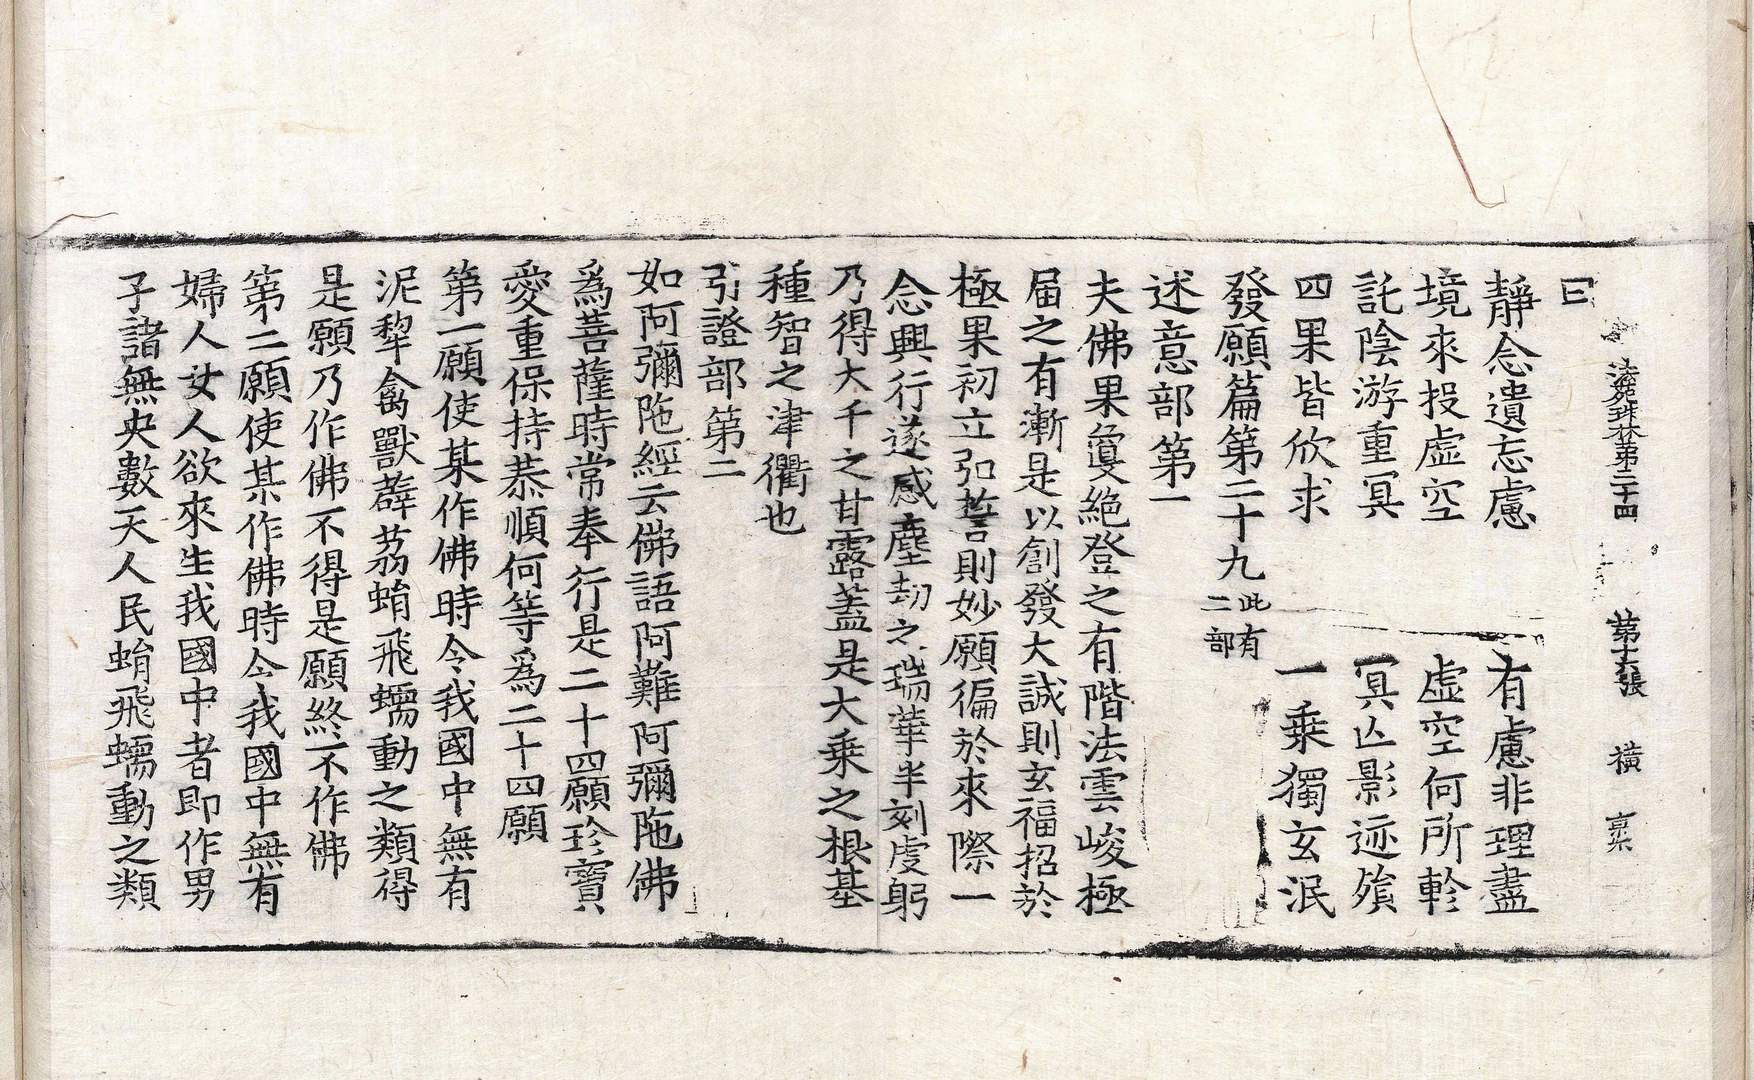 法苑珠林第三十四　第十五張　橫
曰
靜念遺忘慮　有慮非理盡
境來投虛空　虛空何所軫
託陰游重冥　冥亡影迹殞
四果皆欣求　一乘獨玄泯
發願篇第二十九此有二部
述意部第一
夫佛果敻絕登之有階法雲峻極
屆之有漸是以創發大誠則玄福招於
極果初立弘誓則妙願徧於來際一
念興行遂感塵劫之瑞華半刻虔躬
乃得大千之甘露蓋是大乘之根基
種智之津衢也
引證部第二
如阿彌陁經云佛語阿難阿彌陁佛
爲菩薩時常奉行是二十四願珍寶
愛重保持恭順何等爲二十四願
第一願使某作佛時令我國中無有
泥犂禽獸薜荔蜎飛蠕動之類得
是願乃作佛不得是願終不作佛
第二願使某作佛時令我國中無有
婦人女人欲來生我國中者即作男
子諸無央數天人民蜎飛蠕動之類